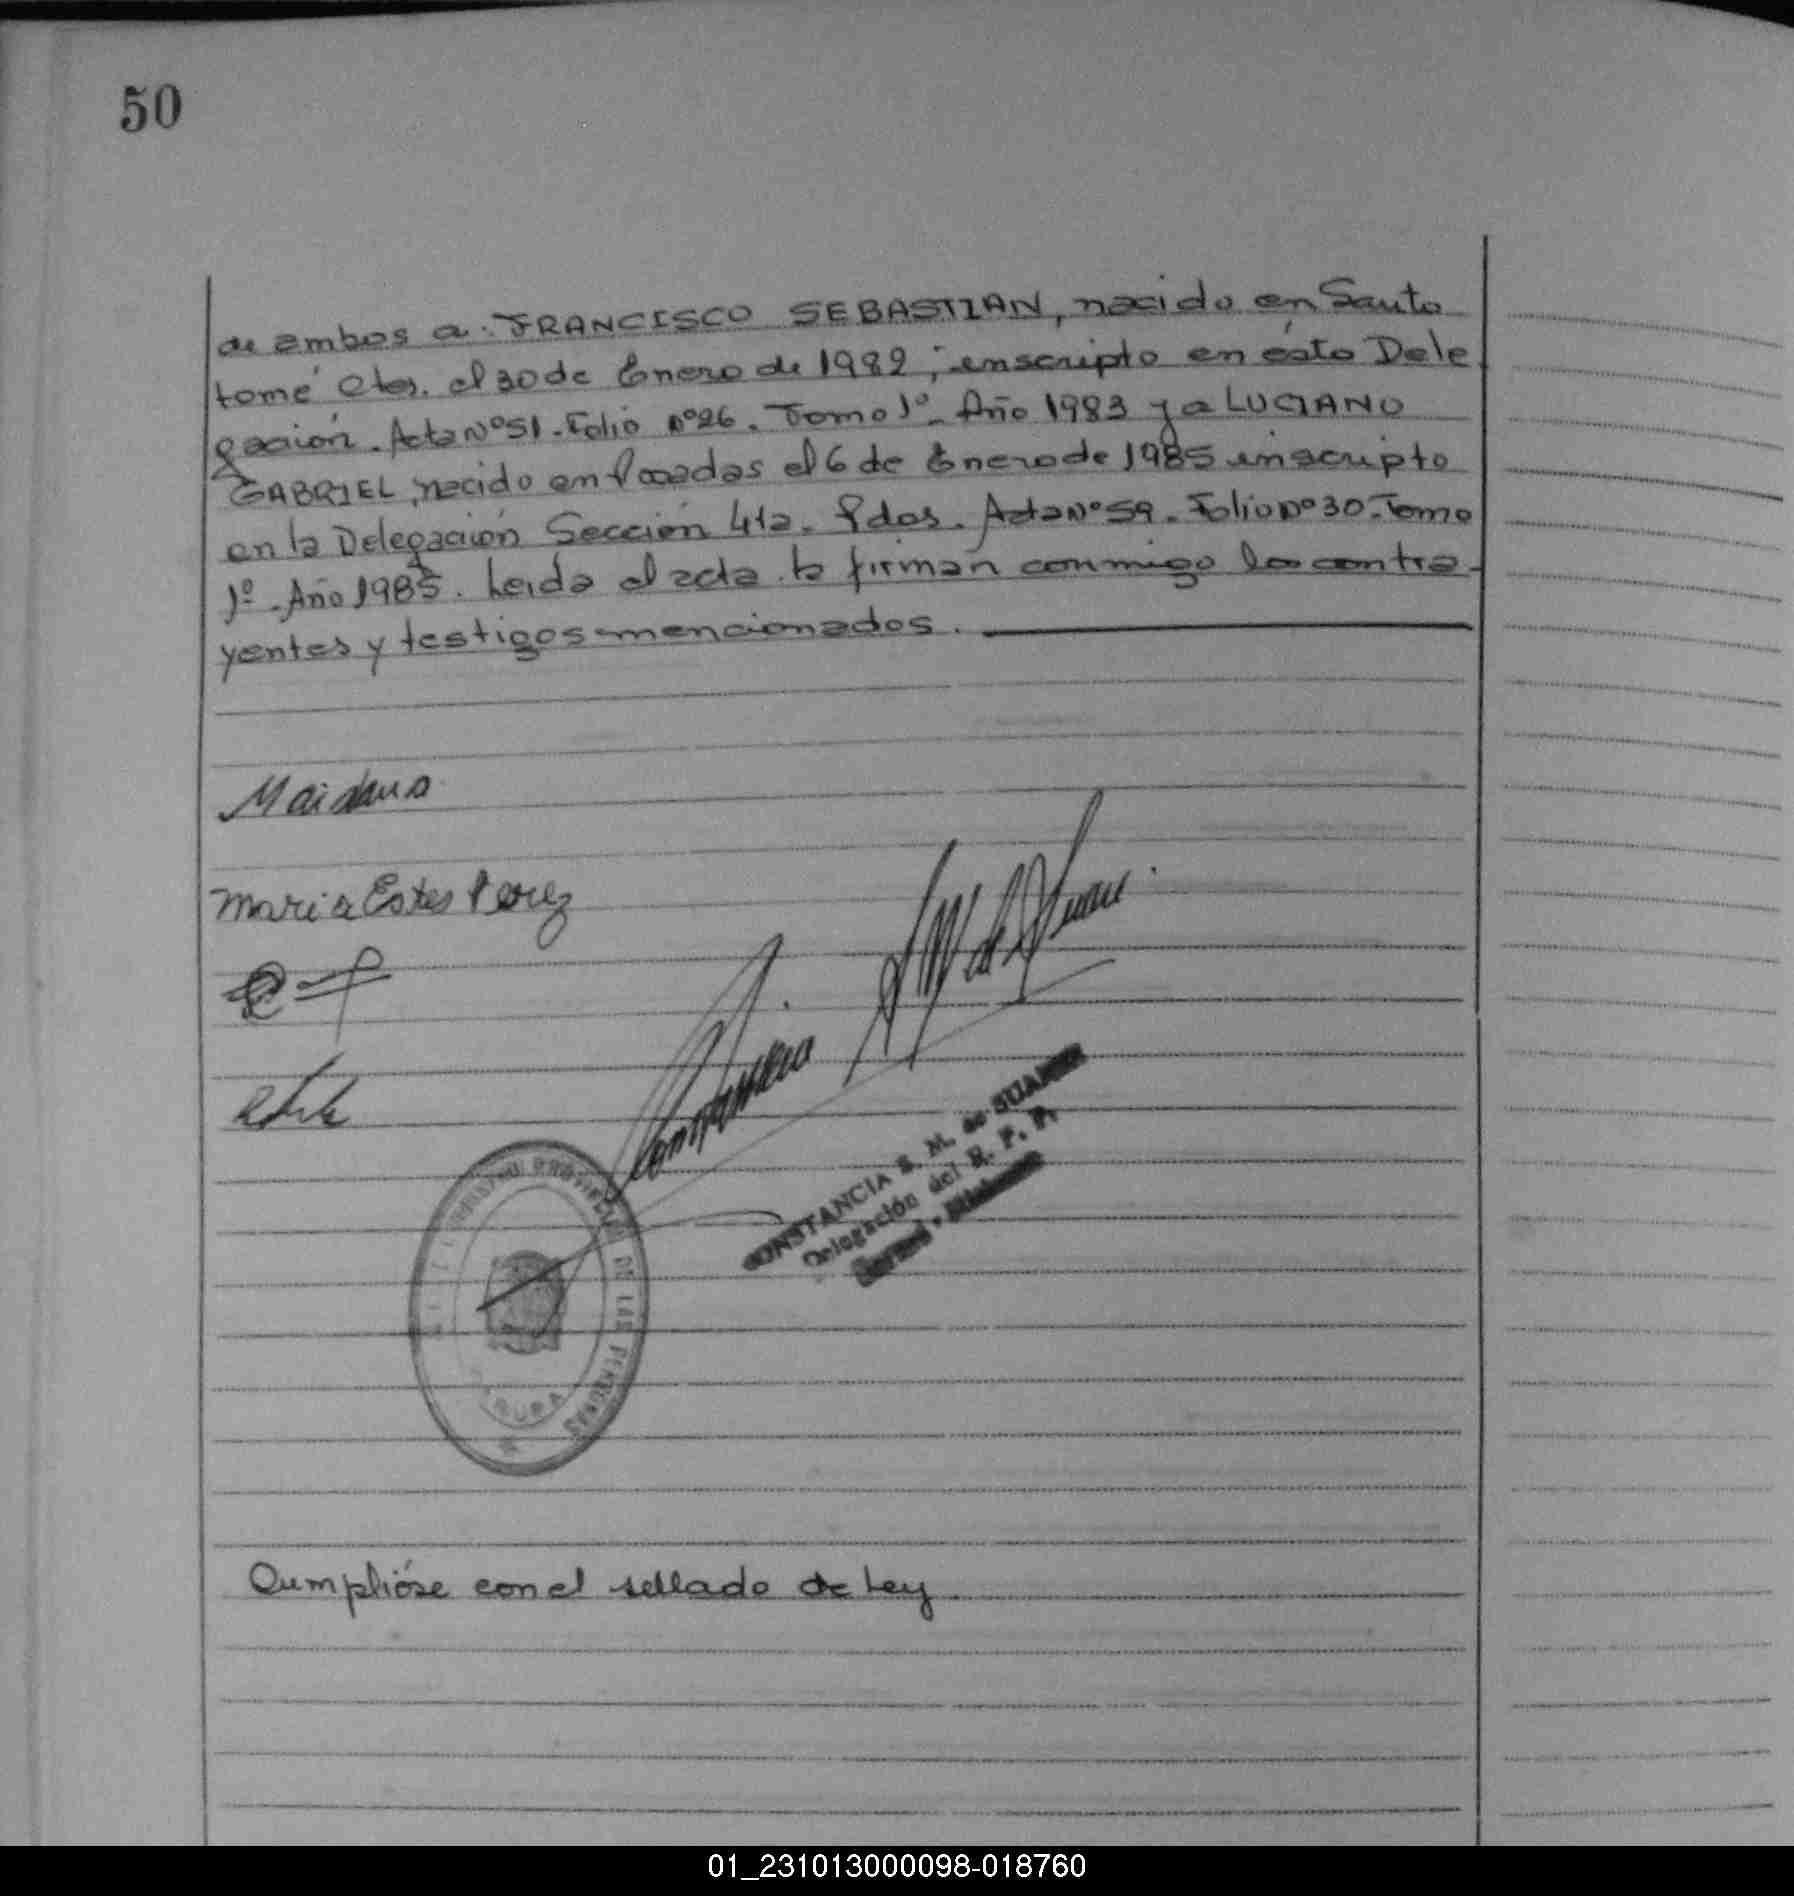 50
de ambos a: FRANCISCO SEBASTIAN, nacido en Santo
tomé Ctes. el 30 de Enero de 1982; inscripto en ésta Dele
gación. Acta Nº 51. Folio Nº 26. Tomo 1º. Año 1983 y a LUCIANO
GABRIEL, nacido en Posadas el 6 de Enero de 1985 inscripto
en la Delegación Sección 4ta. Pdas. Acta Nº 59. Folio Nº 30. Tomo
1º. Año 1985. Leída el acta la firman conmigo los contra
yentes y testigos mencionados.
Maidana
Maria Ester Perez
CONSTANCIA S. M. de SUAREZ
Delegación del R. P. P.
REGISTRO PROVINCIAL DE LAS PERSONAS
Cumplióse con el sellado de Ley
01_231013000098-018760